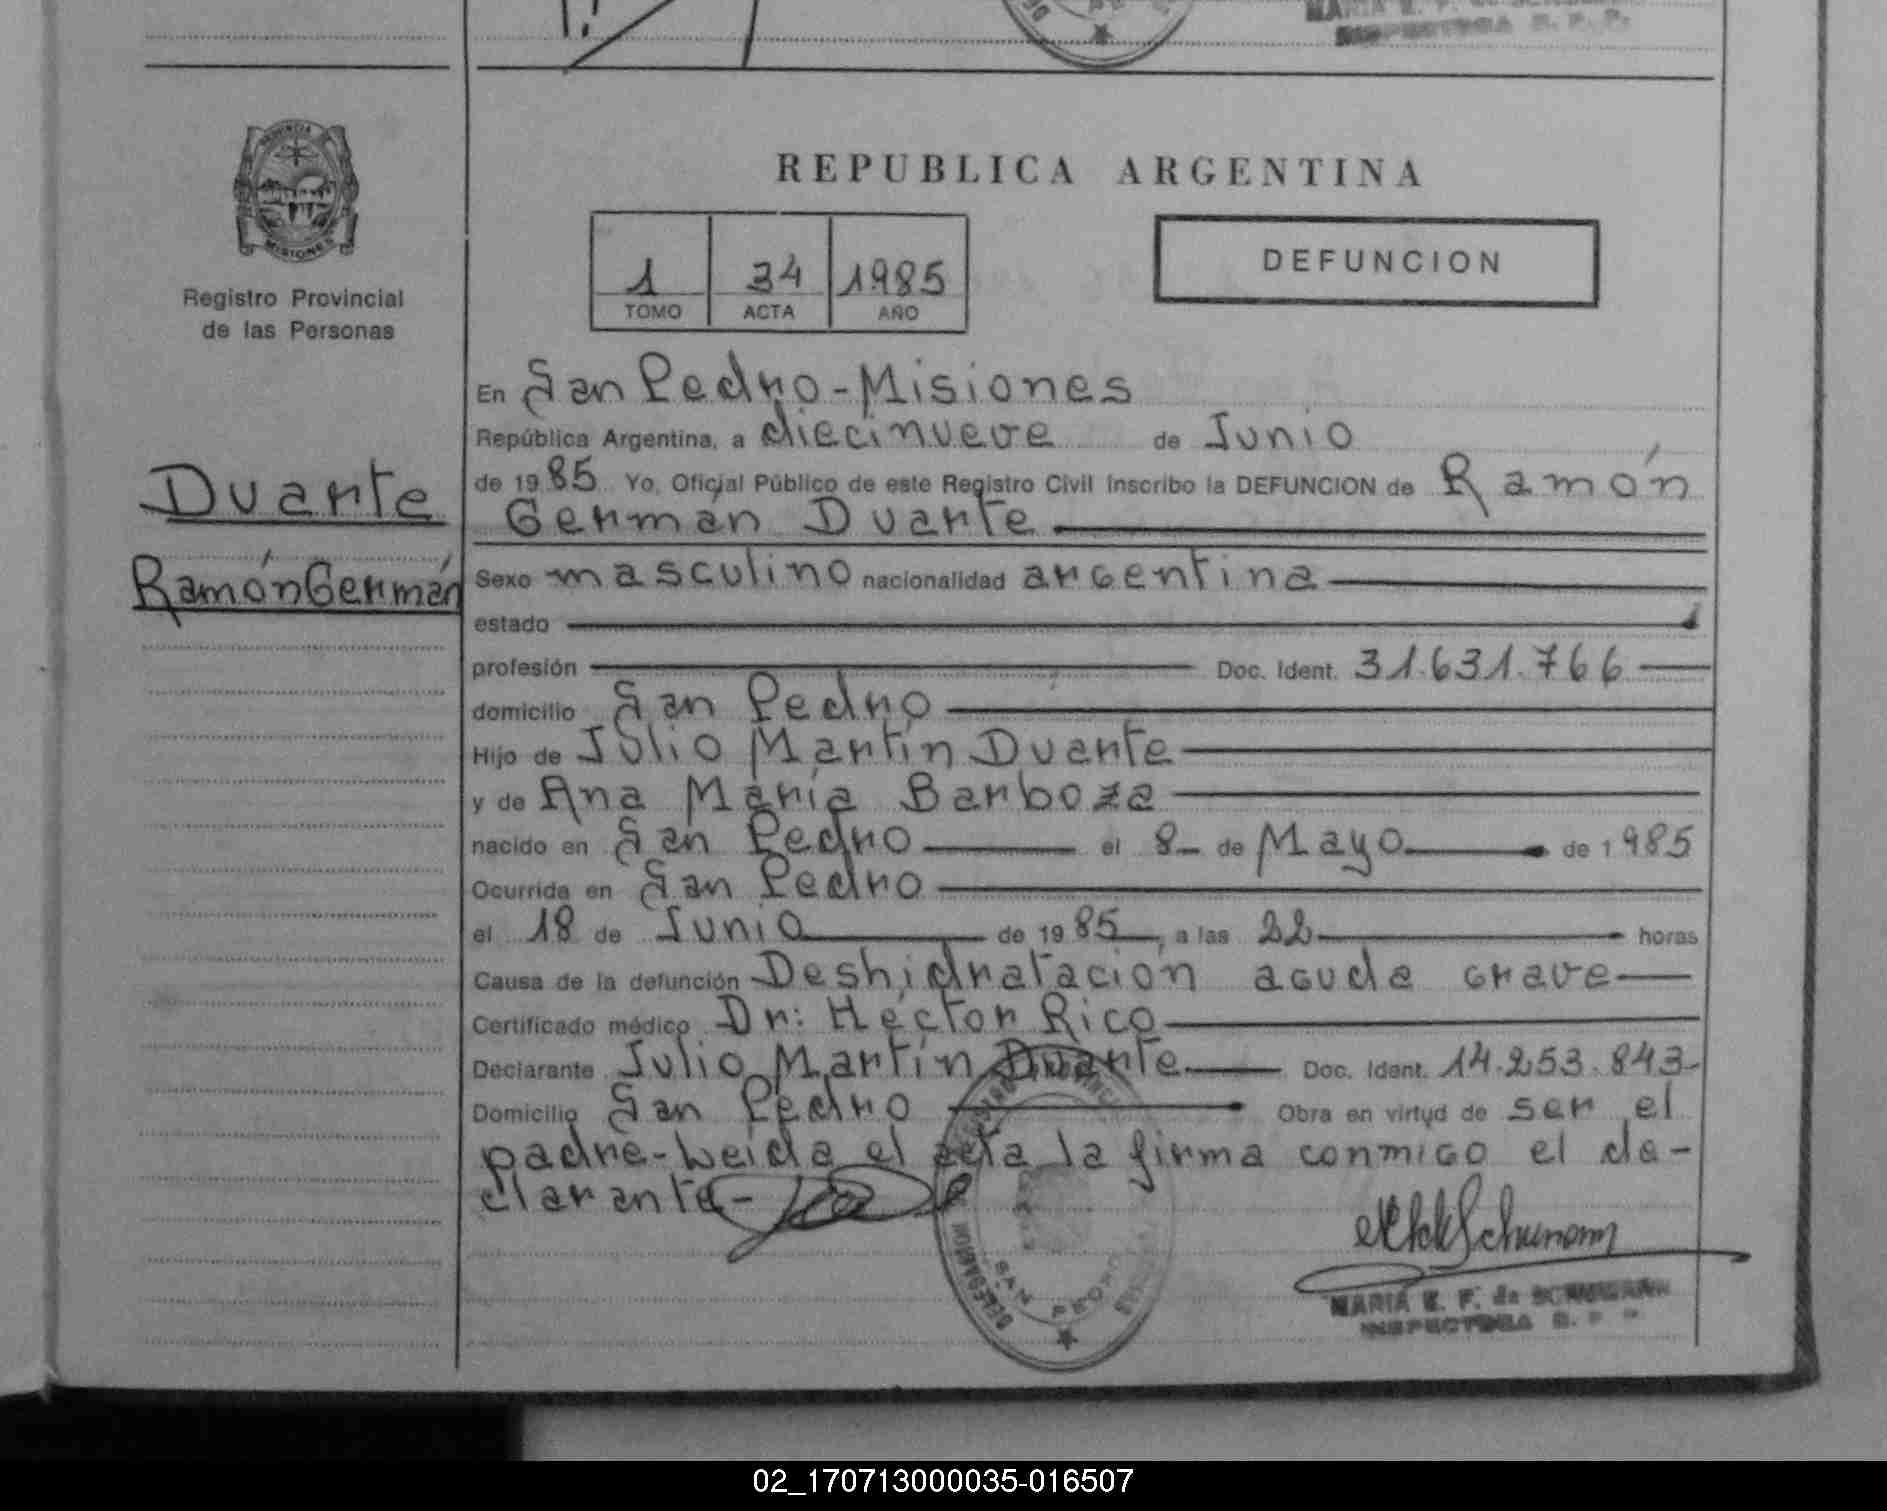 MARIA E. F. de
INSPECTORA
PROVINCIA
MISIONES
Registro Provincial
de las Personas
REPUBLICA ARGENTINA
1 34 1985
TOMO ACTA AÑO
DEFUNCION
En San Pedro-Misiones
República Argentina, a diecinueve de Junio
de 1985 Yo, Oficial Público de este Registro Civil inscribo la DEFUNCION de Ramón
German Duarte
Duarte
Ramón Germán
Sexo masculino nacionalidad argentina
estado
profesión Doc. Ident. 31.631.766
domicilio San Pedro
Hijo de Julio Martín Duarte
y de Ana María Barboza
nacido en San Pedro el 8 de Mayo de 1985
Ocurrida en San Pedro
el 18 de Junio de 1985, a las 22 horas
Causa de la defunción Deshidratación aguda grave
Certificado médico Dr: Héctor Rico
Declarante Julio Martín Duarte Doc. Ident. 14.253.843-
Domicilio San Pedro Obra en virtud de ser el
padre-Leida el acta la firma conmigo el de-
clarante-
DELEGACION SAN PEDRO
Schumann
MARIA E. F. de SCHUMANN
INSPECTORA
02_170713000035-016507